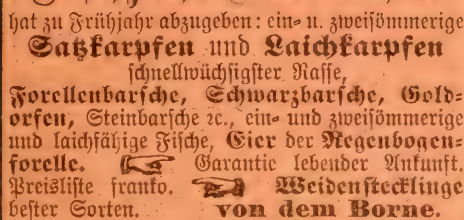 hat zu Frühjahr abzugeben: ein- u. zweisömmerige
Satzkarpfen und Laichkarpfen
schnellwüchsigster Rasse,
Forellenbarsche, Schwarzbarsche, Gold-
orfen, Steinbarsche ꝛc., ein- und zweisömmerige
und laichfähige Fische, Eier der Regenbogen-
forelle. ☞ Garantie lebender Ankunft.
Preisliste franko. ☞ Weidenstecklinge
bester Sorten. von dem Borne.